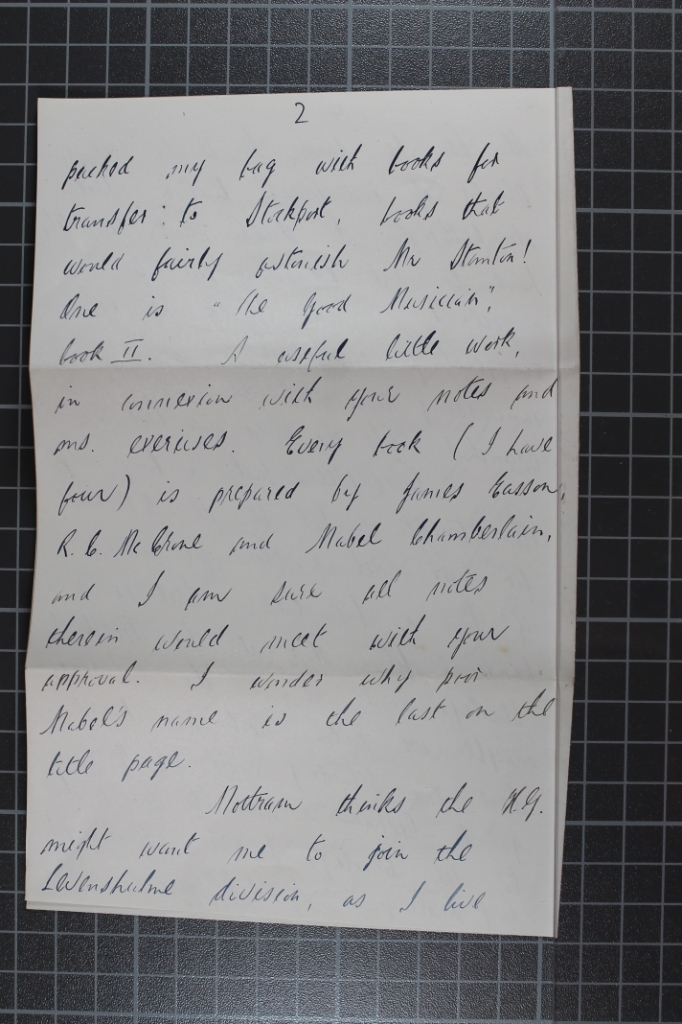 2
packed my bag with books for
transfer: to Stockport, books that
would fairly astonish Mr Stanton!
One is "The Good Musician",
book II. A useful little work,
in connexion with your notes and
ms. exercises. Every book (I have
four) is prepared by James Easson,
R. C. McCrone and Mabel Chamberlain,
and I am sure all notes
therein would meet with your
approval. I wonder why poor
Mabel's name is the last on the
title page.
Mottram thinks the H.G.
might want me to join the
Levenshulme division, as I live